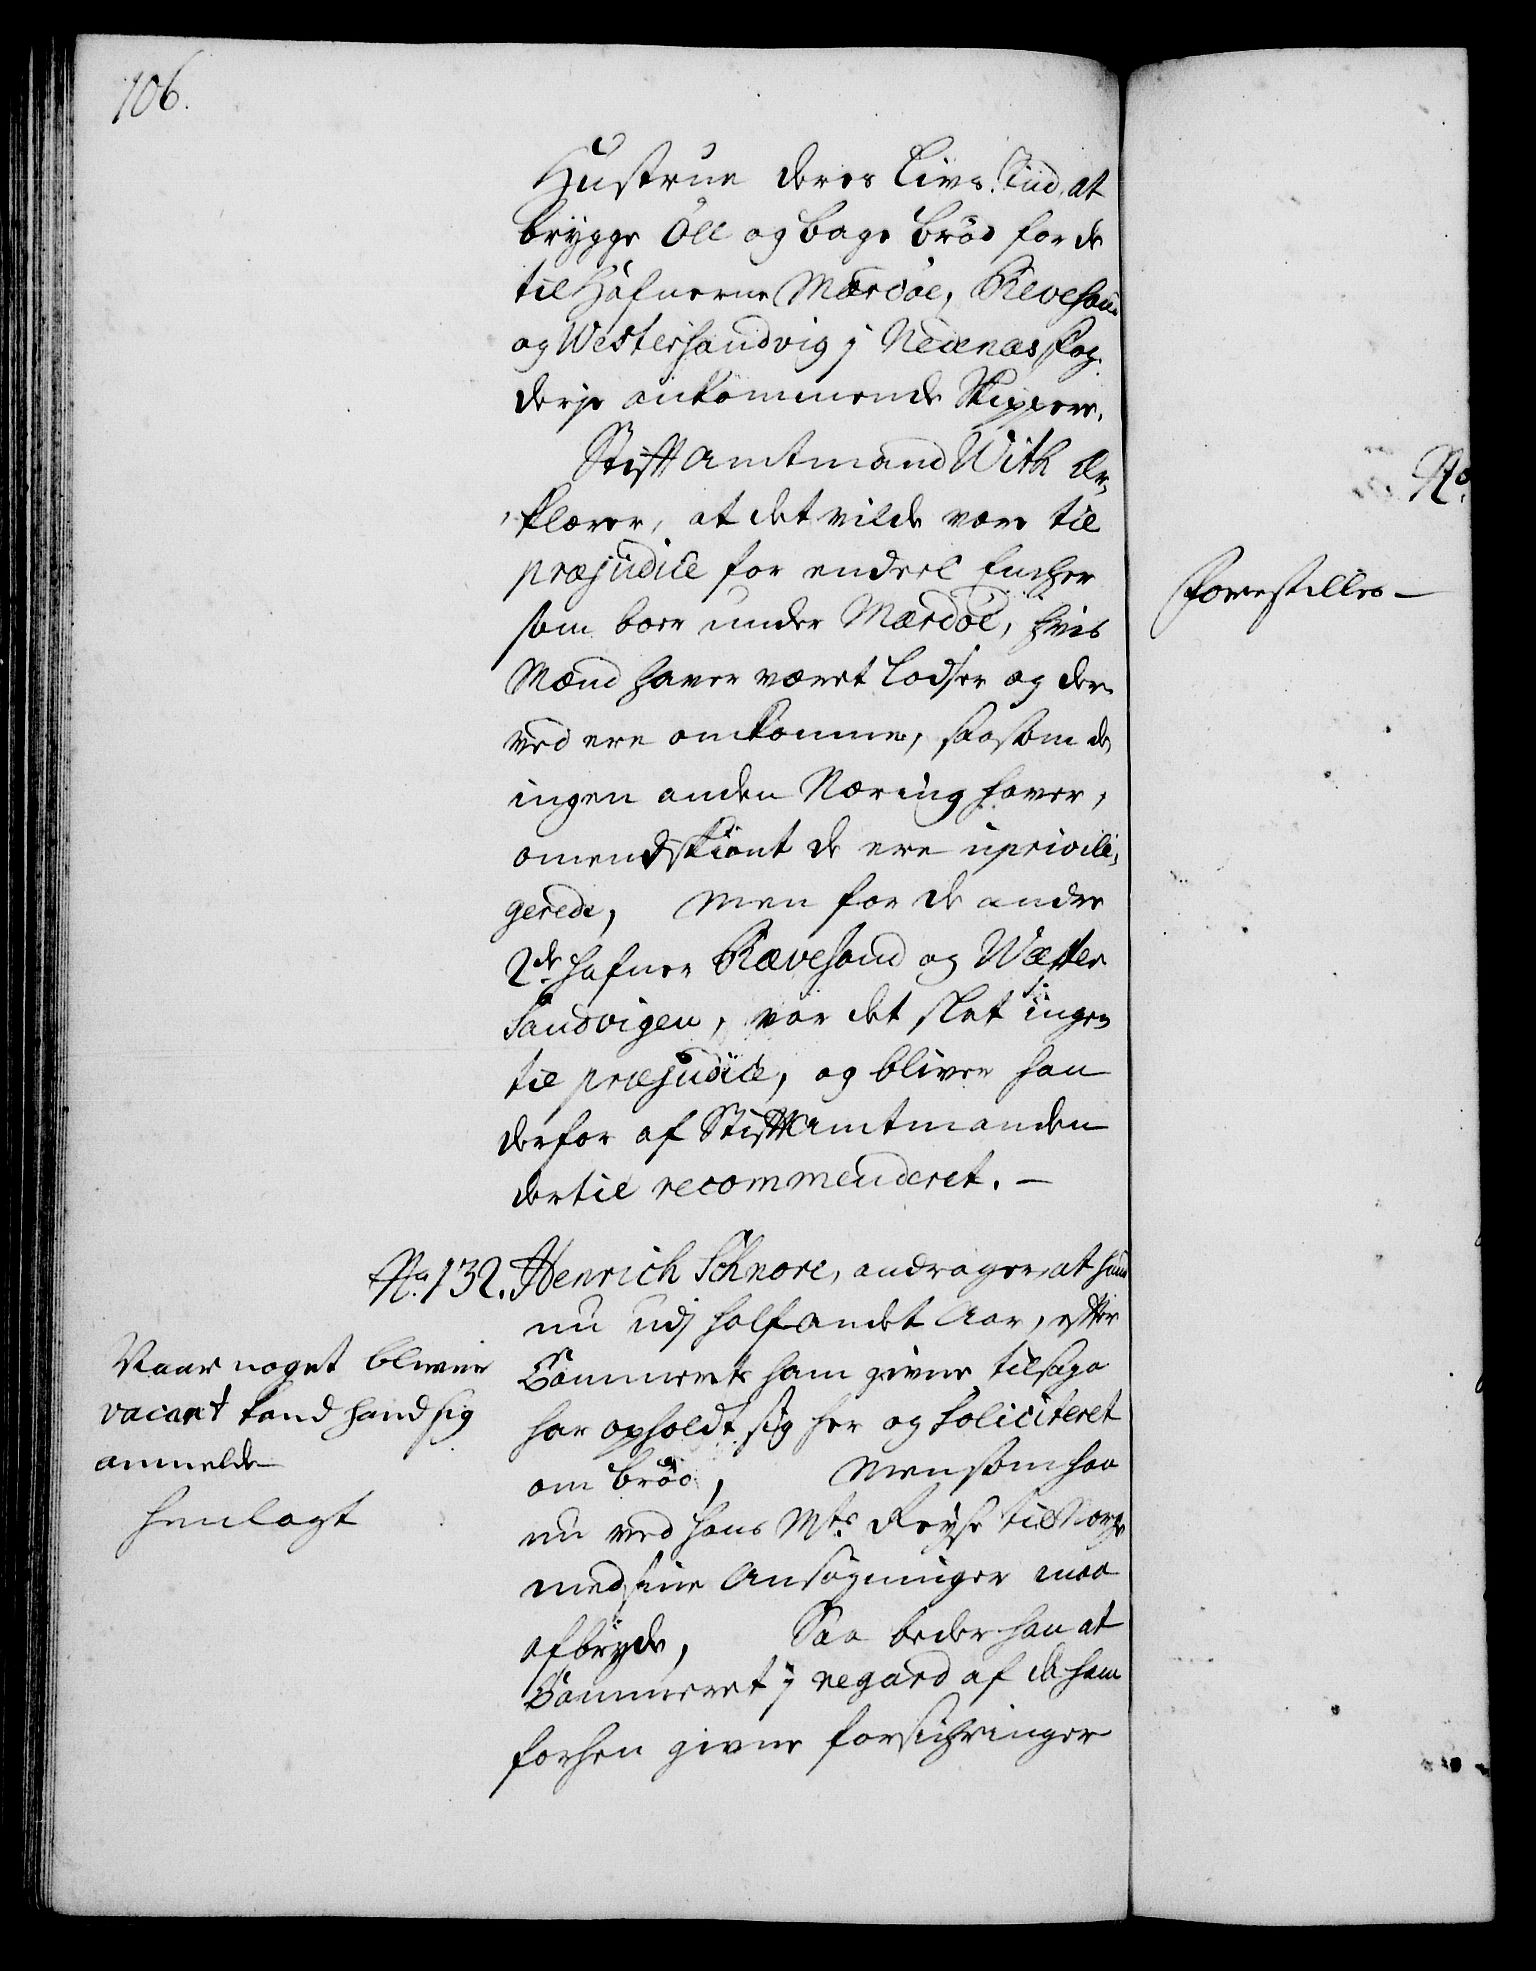 106.
Hustrue deres Livs Tiid, at
brygge Öll og bage Bröd for de
til Hafnerne Mærdöe, Revesand
og Westersandvig i Nedenæs Fog-
derie ankommende Skippere.
Stift Amtmand With Er-
klærer, at det vilde være til
præjudice for endeel Encher
som boer under Mærdöe, hvis
Mænd haver været Lodser og der-
ved ere omkomne, saasom de
ingen anden Næring haver,
omendskiönt de ere uprivili-
gerede, Men for de andre
2de hafner Rævesand og Wæster
Sandvigen, var det slet ingen
til præjudice, og bliver han
derfor af Stift Amtmanden
dertil recommenderet. —
No. 132. Henrich Schnore, andrager, at hand
nu udj halfandet Aar, efter
Cammerets ham givne tilsagn
har opholdt sig her og soliciteret
om bröd, Men som han
nu ved Hans Mts Reyse til Norge
med sine Ansögninger maa
afbryde, Saa beder han at
Cammeret i regard af de ham
forhen givne forsichringer
Naar noget blever
vacant kand hand sig
anmelde
henlagt
No.
Forestilles —